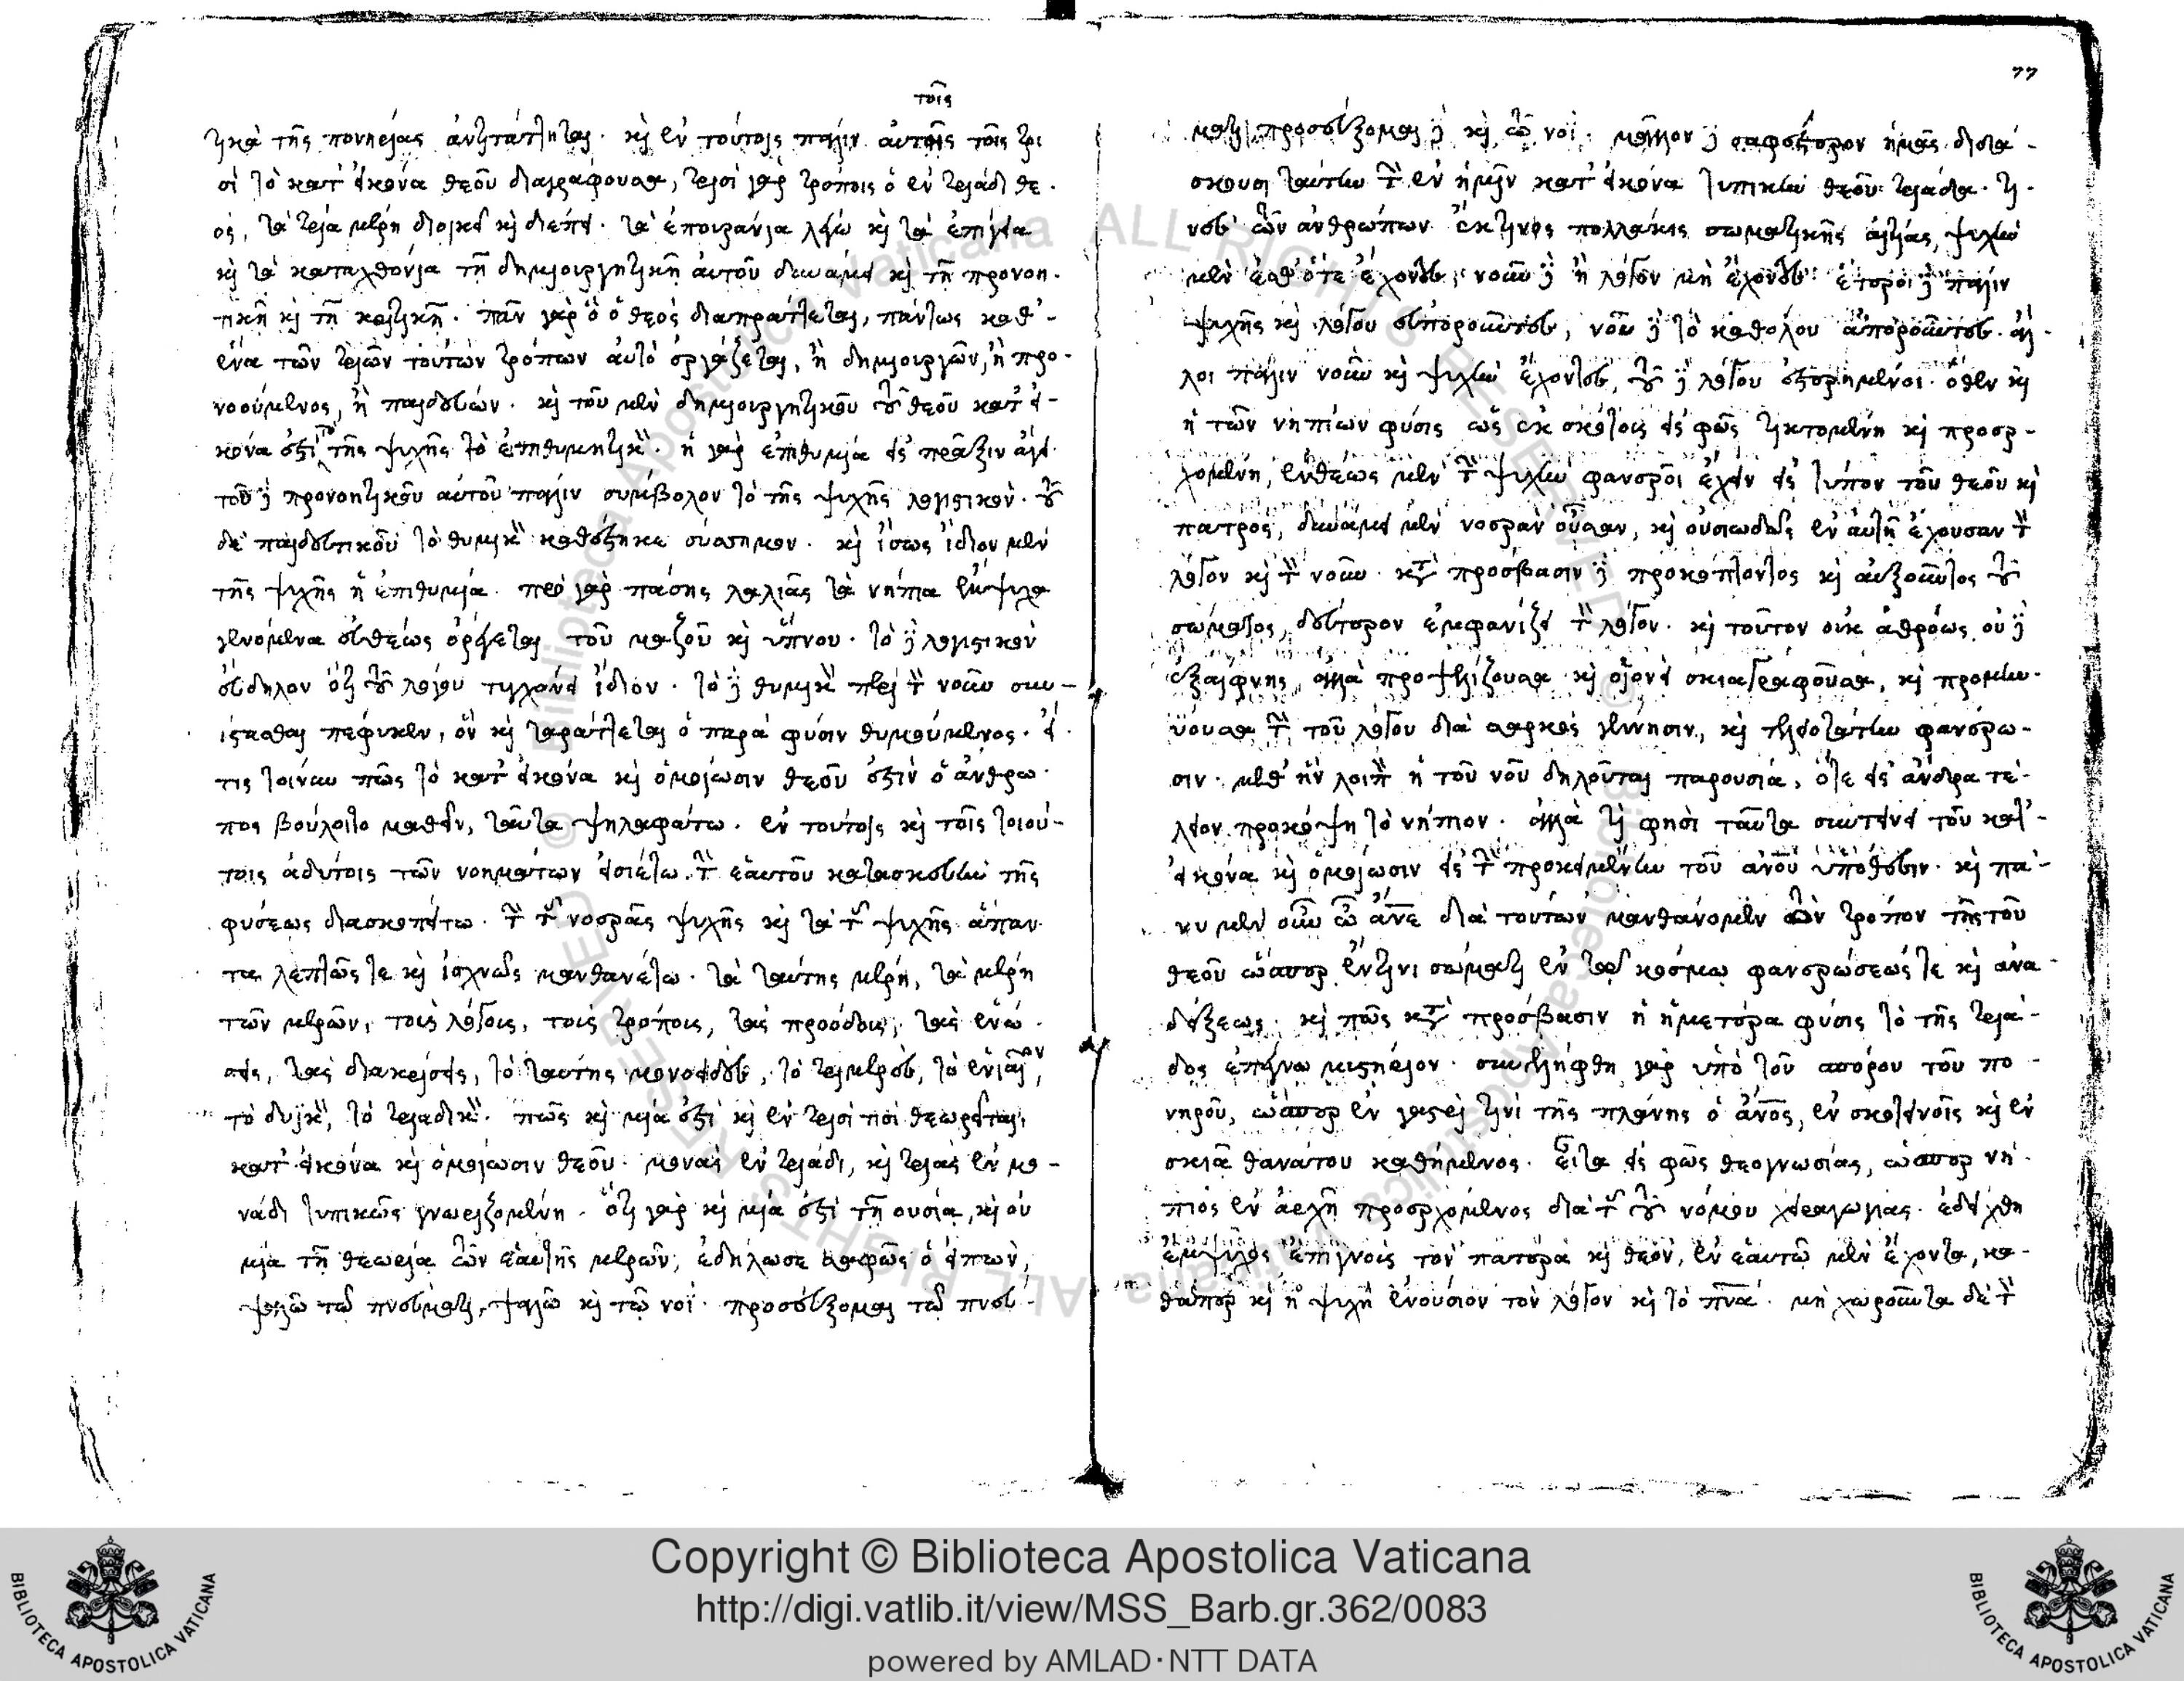 τοῖς
τικὰ τῆς πονηρίας ἀντιτάττηται. καὶ ἐν τούτοις πάλιν αὐτοῖς τοῖς τρι
σὶ τὸ κατ' εἰκόνα θεοῦ διαγράφουσα, τρισὶ γὰρ τρόποις ὁ ἐν τριάδι θε.
ός, τὰ τρία μέρη διοικεῖ καὶ διέπει. τὰ ἐπουράνια λέγω καὶ τὰ ἐπίγεια
καὶ τὰ καταχθόνια τῇ δημιουργητικῇ αὐτοῦ δυνάμει καὶ τῇ προνοη.
τικῇ καὶ τῇ κριτικῇ. πᾶν γὰρ ὃ ὁ θεὸς διαπράττεται, πάντως καθ'-
ἕνα τῶν τριῶν τούτων τρόπων αὐτὸ ἐργάζεται, ἢ δημιουργῶν, ἢ προ-
νοούμενος, ἢ παιδεύων. καὶ τοῦ μὲν δημιουργητικοῦ τοῦ θεοῦ κατ' εἰ-
κόνα ἐστὶ τῆς ψυχῆς τὸ ἐπιθυμητικόν. ἡ γὰρ ἐπιθυμία εἰς πρᾶξιν ἄγει.
τοῦ δὲ προνοητικοῦ αὐτοῦ πάλιν σύμβολον τὸ τῆς ψυχῆς λογιστικόν. τοῦ
δὲ παιδευτικοῦ τὸ θυμικὸν καθέστηκε σύσσημον. καὶ ἴσως ἴδιον μὲν
τῆς ψυχῆς ἡ ἐπιθυμία. πρὸ γὰρ πάσης λαλιᾶς τὰ νήπια ἔμψυχα
γενόμενα εὐθέως ὀρέγεται τοῦ μαζοῦ καὶ ὕπνου. τὸ δὲ λογιστικὸν
εὔδηλον ὅτι τοῦ λόγου τυγχάνει ἴδιον. τὸ δὲ θυμικὸν περὶ τὸν νοῦν συν-
ίστασθαι πέφυκεν, ὃν καὶ ταράττεται ὁ παρὰ φύσιν θυμούμενος. εἴ.
τις τοίνυν πῶς τὸ κατ' εἰκόνα καὶ ὁμοίωσιν θεοῦ ἐστὶν ὁ ἄνθρω.
πος βούλοιτο μαθεῖν, ταῦτα ψηλαφάτω. ἐν τούτοις καὶ τοῖς τοιού-
τοις ἀδύτοις τῶν νοημάτων εἰσίτω. τὴν ἑαυτοῦ κατασκευὴν τῆς
φύσεως διασκοπείτω. τὴν τῆς νοερᾶς ψυχῆς καὶ τὰ τῆς ψυχῆς ἅπαν
τα λεπτῶς τε καὶ ἰσχνῶς μανθανέτω. τὰ ταύτης μέρη, τὰ μέρη
τῶν μερῶν, τοὺς λόγους, τοὺς τρόπους, τὰς προόδους, τὰς ἑνώ.
σεις, τὰς διακρίσεις, τὸ ταύτης μονοειδές, τὸ τριμερές, τὸ ἑνιαῖον,
τὸ δυϊκόν, τὸ τριαδικόν. πῶς καὶ μία ἐστὶ καὶ ἐν τρισί τισι θεωρεῖται,
κατ' εἰκόνα καὶ ὁμοίωσιν θεοῦ. μονὰς ἐν τριάδι, καὶ τριὰς ἐν μο-
νάδι τυπικῶς γνωριζομένη. ὅτι γὰρ καὶ μία ἐστὶ τῇ οὐσίᾳ, καὶ οὐ
μία τῇ θεωρίᾳ τῶν ἑαυτῆς μερῶν, ἐδήλωσε σαφῶς ὁ εἰπών,
ψαλῶ τῷ πνεύματι, ψαλῶ καὶ τῷ νοΐ. προσεύξομαι τῷ πνεύ-
77
ματι, προσεύξομαι δὲ καὶ τῷ νοΐ. μᾶλλον δὲ σαφέστερον ἡμᾶς διδά-
σκουσι ταύτην τὴν ἐν ἡμῖν κατ' εἰκόνα τυπικὴν θεοῦ τριάδα. τι-
νὲς τῶν ἀνθρώπων ἔκ τινος πολλάκις σωματικῆς αἰτίας, ψυχὴν
μὲν ἔσθ' ὅτε ἔχοντες, νοῦν δὲ ἢ λόγον μὴ ἔχοντες. ἕτεροι δὲ πάλιν
ψυχῆς καὶ λόγου εὐποροῦντες, νοῦ δὲ τὸ καθόλου ἀποροῦντες. ἄλ-
λοι πάλιν νοῦν καὶ ψυχὴν ἔχοντες, τοῦ δὲ λόγου ἐστερημένοι. ὅθεν καὶ
ἡ τῶν νηπίων φύσις ὡς ἐκ σκότους εἰς φῶς τικτομένη καὶ προερ-
χομένη, εὐθέως μὲν τὴν ψυχὴν φανεροῖ ἔχειν εἰς τύπον τοῦ θεοῦ καὶ
πατρός, δυνάμει μὲν νοερὰν οὖσαν, καὶ οὐσιωδῶς ἐν αὐτῇ ἔχουσαν τὸν
λόγον καὶ τὸν νοῦν. κατὰ πρόσβασιν δὲ προκόπτοντος καὶ αὐξοῦντος τοῦ
σώματος, δεύτερον ἐμφανίζει τὸν λόγον. καὶ τοῦτον οὐκ ἀθρόως, οὐ δὲ
ἐξαίφνης, ἀλλὰ προψελλίζουσα καὶ οἱονεὶ σκιαγραφοῦσα, καὶ προμην-
ύουσα τὴν τοῦ λόγου διὰ σαρκὸς γέννησιν, καὶ τελεοτάτην φανέρω-
σιν. μεθ' ἣν λοιπὸν ἡ τοῦ νοῦ δηλοῦται παρουσία, ὅτε εἰς ἄνδρα τέ-
λειον προκόψῃ τὸ νήπιον. ἀλλὰ τί φησι ταῦτα συντείνει τοῦ κατ'-
εἰκόνα καὶ ὁμοίωσιν εἰς τὴν προκειμένην τοῦ ἀνου ὑπόθεσιν. καὶ πά-
νυ μὲν οὖν ὦ ἄνε διὰ τούτων μανθάνομεν τὸν τρόπον τῆς τοῦ
θεοῦ ὥσπερ ἔν τινι σώματι ἐν τῷ κόσμῳ φανερώσεώς τε καὶ ἀνα-
δείξεως. καὶ πῶς κατὰ πρόσβασιν ἡ ἡμετέρα φύσις τὸ τῆς τριά-
δος ἐπέγνω μυστήριον. συνελήφθη γὰρ ὑπὸ τοῦ σπόρου τοῦ πο-
νηροῦ, ὥσπερ ἐν γαστρί τινι τῆς πλάνης ὁ ἄνος, ἐν σκοτεινοῖς καὶ ἐν
σκιᾷ θανάτου καθήμενος. εἶτα εἰς φῶς θεογνωσίας, ὥσπερ νή-
πιος ἐν ἀρχῇ προερχόμενος διὰ τῆς τοῦ νόμου χειραγωγίας. ἐδείχθη
ἔμψυχος ἐπιγνοὺς τὸν πατέρα καὶ θεόν, ἐν ἑαυτῷ μὲν ἔχοντα, κα-
θάπερ καὶ ἡ ψυχὴ ἐνούσιον τὸν λόγον καὶ τὸ πνα. μὴ χωροῦντα δὲ τὴν
Copyright © Biblioteca Apostolica Vaticana
http://digi.vatlib.it/view/MSS_Barb.gr.362/0083
powered by AMLAD·NTT DATA
BIBLIOTECA APOSTOLICA VATICANA
BIBLIOTECA APOSTOLICA VATICANA